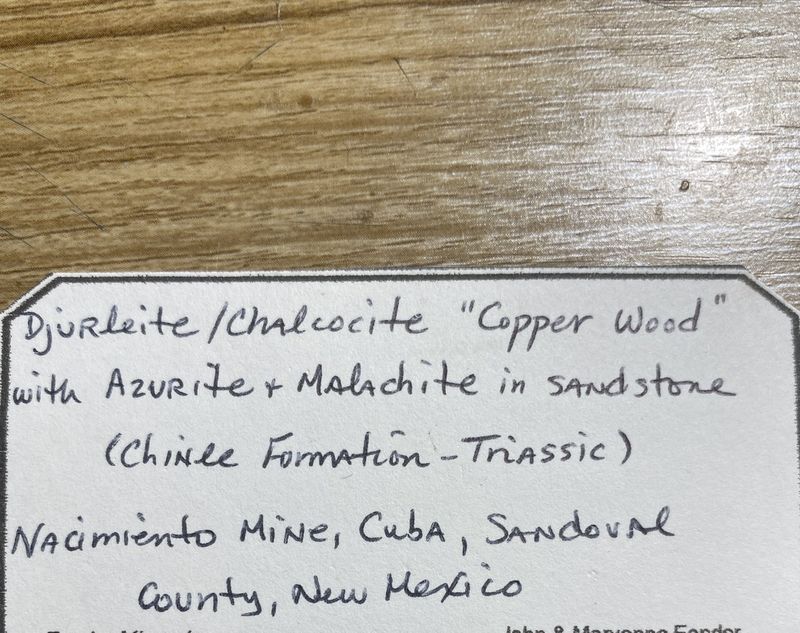 Djurleite/Chalcocite "Copper Wood"
with Azurite + Malachite in sandstone
(Chinle Formation - Triassic)
Nacimiento Mine, Cuba, Sandoval
County, New Mexico
John & Maryanne Fender